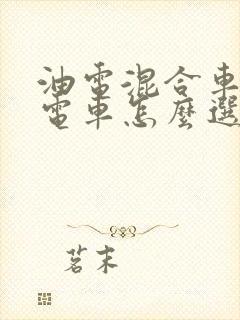 油電混合車
電車怎麼選
茗末